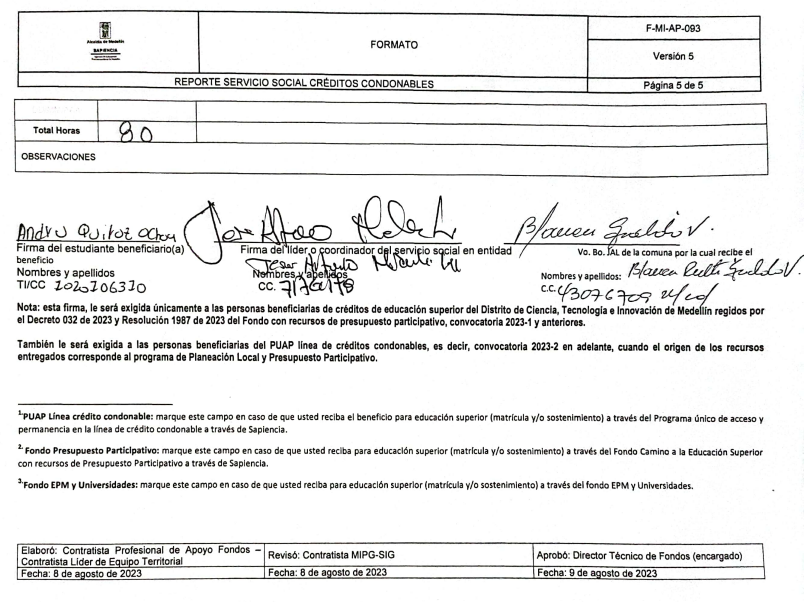 Alcaldía de Medellín
SAPIENCIA
FORMATO
F-MI-AP-093
Versión 5
REPORTE SERVICIO SOCIAL CRÉDITOS CONDONABLES
Página 5 de 5
Total Horas 80
OBSERVACIONES
Andrw Quiroz Ochoa
Firma del estudiante beneficiario(a)
beneficio
Nombres y apellidos
TI/CC 1020106310
Firma del líder o coordinador del servicio social en entidad
Nombres y apellidos
CC.
Vo. Bo. JAL de la comuna por la cual recibe el
Nombres y apellidos: Blanca Ruth
C.C. 43076709
Nota: esta firma, le será exigida únicamente a las personas beneficiarias de créditos de educación superior del Distrito de Ciencia, Tecnología e Innovación de Medellín regidos por
el Decreto 032 de 2023 y Resolución 1987 de 2023 del Fondo con recursos de presupuesto participativo, convocatoria 2023-1 y anteriores.
También le será exigida a las personas beneficiarias del PUAP línea de créditos condonables, es decir, convocatoria 2023-2 en adelante, cuando el origen de los recursos
entregados corresponde al programa de Planeación Local y Presupuesto Participativo.
1.PUAP Línea crédito condonable: marque este campo en caso de que usted reciba el beneficio para educación superior (matrícula y/o sostenimiento) a través del Programa único de acceso y
permanencia en la línea de crédito condonable a través de Sapiencia.
2. Fondo Presupuesto Participativo: marque este campo en caso de que usted reciba para educación superior (matrícula y/o sostenimiento) a través del Fondo Camino a la Educación Superior
con recursos de Presupuesto Participativo a través de Sapiencia.
3.Fondo EPM y Universidades: marque este campo en caso de que usted reciba para educación superior (matrícula y/o sostenimiento) a través del fondo EPM y Universidades.
Elaboró: Contratista Profesional de Apoyo Fondos –
Contratista Líder de Equipo Territorial
Revisó: Contratista MIPG-SIG
Aprobó: Director Técnico de Fondos (encargado)
Fecha: 8 de agosto de 2023
Fecha: 8 de agosto de 2023
Fecha: 9 de agosto de 2023